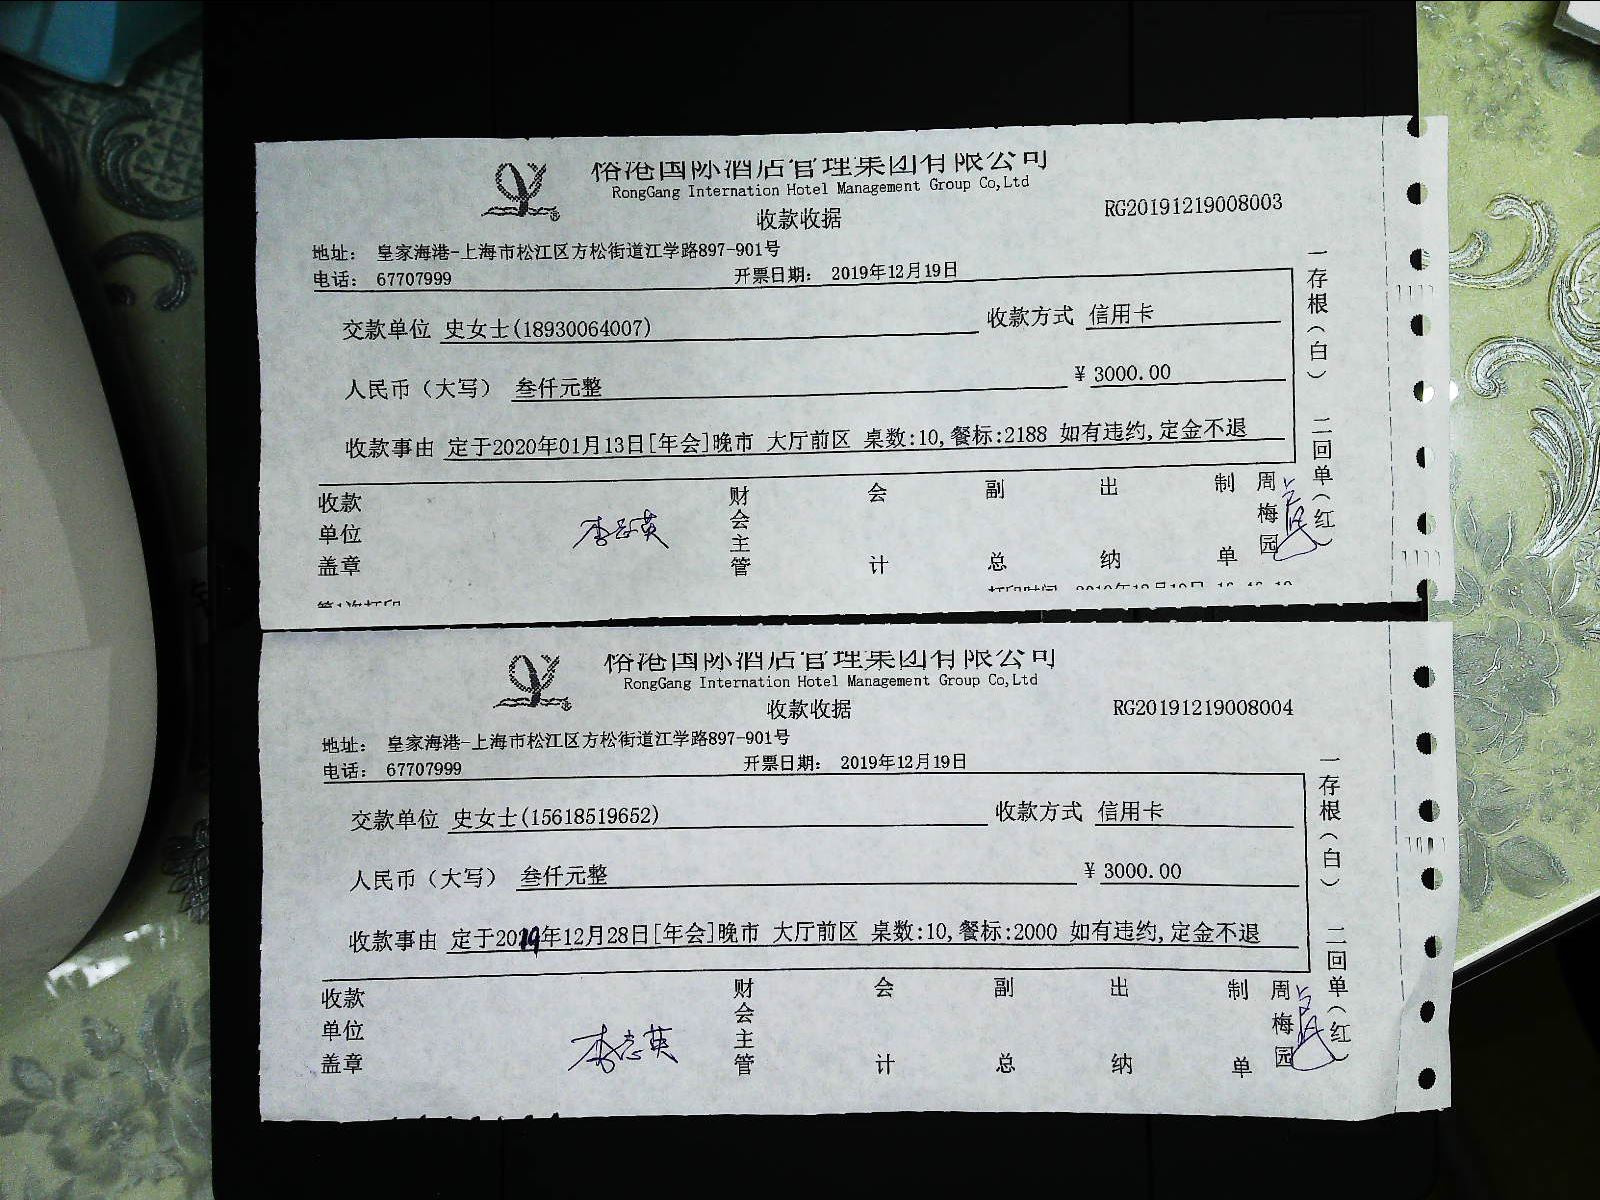 榕港国际酒店管理集团有限公司
RongGang Internation Hotel Management Group Co,Ltd
收款收据
RG20191219008003
地址： 皇家海港-上海市松江区方松街道江学路897-901号
电话： 67707999 开票日期： 2019年12月19日
交款单位 史女士(18930064007) 收款方式 信用卡
人民币（大写） 叁仟元整 ¥ 3000.00
收款事由 定于2020年01月13日[年会]晚市 大厅前区 桌数:10,餐标:2188 如有违约,定金不退
收款单位盖章 财会主管 会计 副总 出纳 制单 周梅园
一存根（白） 二回单（红）
第1次打印
榕港国际酒店管理集团有限公司
RongGang Internation Hotel Management Group Co,Ltd
收款收据
RG20191219008004
地址： 皇家海港-上海市松江区方松街道江学路897-901号
电话： 67707999 开票日期： 2019年12月19日
交款单位 史女士(15618519652) 收款方式 信用卡
人民币（大写） 叁仟元整 ¥ 3000.00
收款事由 定于2019年12月28日[年会]晚市 大厅前区 桌数:10,餐标:2000 如有违约,定金不退
收款单位盖章 李志英 财会主管 会计 副总 出纳 制单 周梅园
一存根（白） 二回单（红）